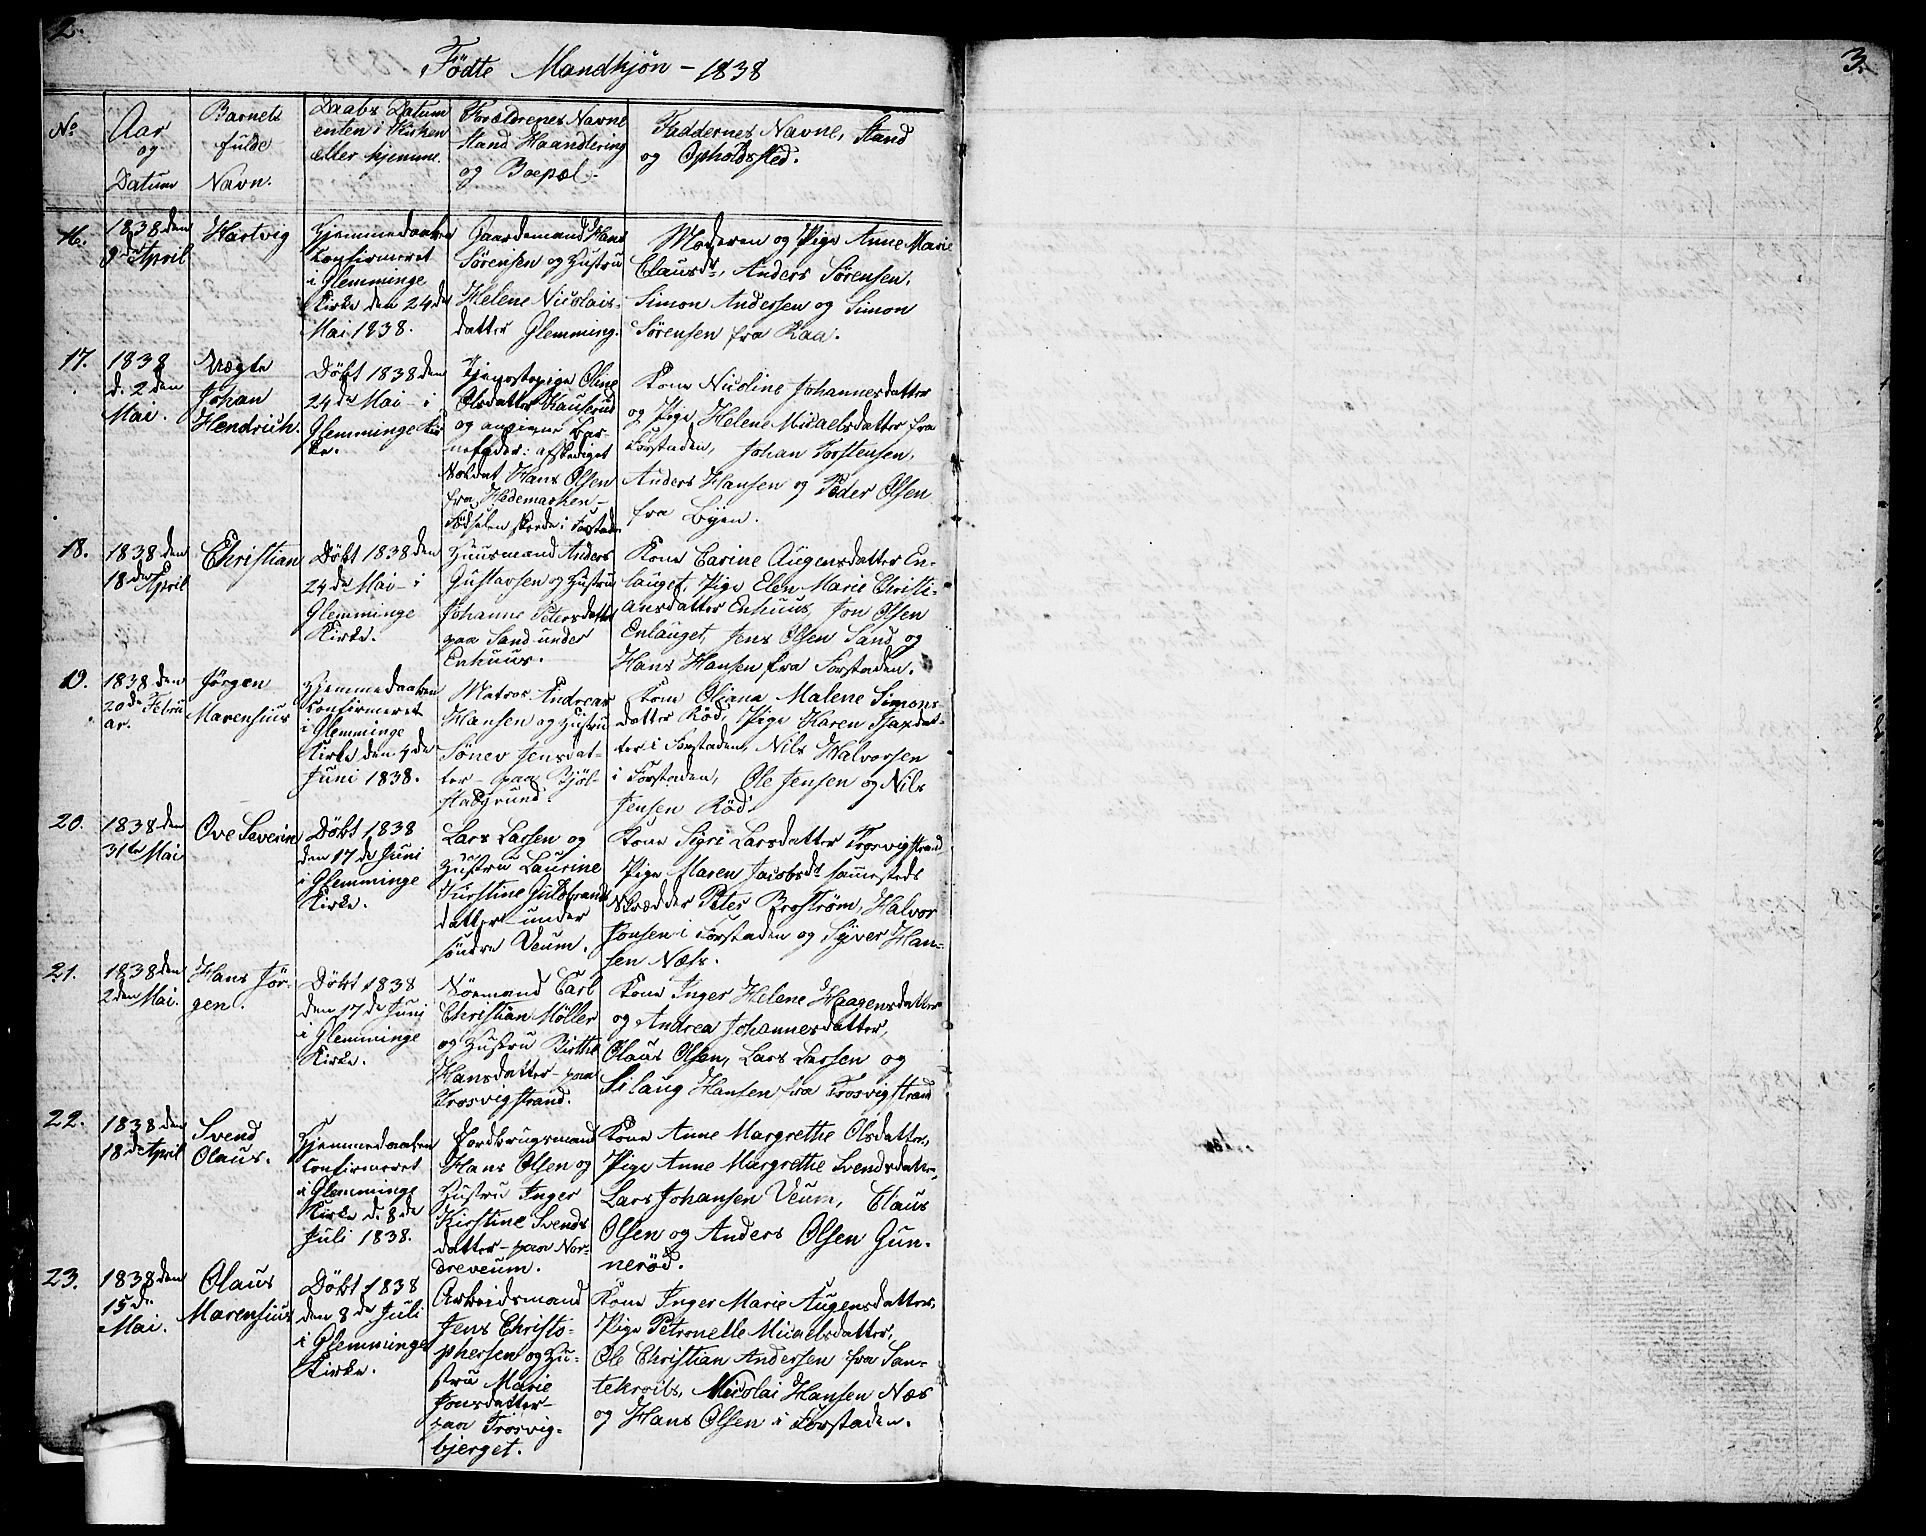 2.
3.
Födte Mandkjön - 1838
No
Aar
og
Datum
Barnets
fulde
Navn.
Daabs Datum
enten i Kirken
eller hjemme.
Forældrenes Navne
Stand Haandtering
og Boepæl.
Faddernes Navne, Stand
og Opholdssted.
16.
1838 den
9de April
Hartvig
Hjemmedaaben
Confirmeret
i Glemminge
Kirke den 24de
Mai 1838.
Gaardemand Hans
Sörensen og Hustru
Helene Nicolais-
datter Glemming.
Moderen og Pige Anne Marie
Clausdr, Anders Sörensen,
Simon Andersen og Simon
Sörensen fra Kaa.
17.
1838
d. 2den
Mai.
Uægte
Johan
Hendrich.
Döbt 1838 den
24de Mai - i
Glemminge Kir-
ke.
Tjenestepige Oline
Olsdatter Kauserud
og angivne Bar-
nefader: afskediget
Soldat Hans Olsen
fra Hedemarken -
Födselen skeede i Forstaden
Kone Nicoline Johannesdatter
og Pige Helene Micaelsdatter fra
Forstaden, Johan Torstensen,
Anders Hansen og Peder Olsen
fra Byen.
18.
1838 den
18de April
Christian
Döbt 1838 den
24de Mai - i
Glemminge
Kirke.
Huusmand Anders
Gustavsen og Hustru
Johanne Petersdatter
paa Sand under
Enhuus.
Kone Carine Augensdatter En-
lauget, Pige Elen Marie Christi-
ansdatter Enhuus, Jon Olsen
Enlauget, Jens Olsen Sand og
Hans Hansen fra Forstaden.
19.
1838 den
20de Febru
ar.
Jörgen
Marensius
Hjemmedaaben
Confirmeret
i Glemminge
Kirke den 4de
Juni 1838.
Matros Andreas
Hansen og Hustru
Sönev Jensdat-
ter - paa Bjöl-
stadgrund.
Kone Oliana Malene Simons-
datter Röd, Pige Karen Isaxdat-
ter i Forstaden, Nils Halvorsen
i Forstaden, Ole Jensen og Nils
Jensen Röd.
20.
1838 den
31te Mai
Ove Severin
Döbt 1838
den 17de Juni
i Glemminge
Kirke.
Lars Larsen og
Hustru Laurine
Kirstine Guldbrands
datter - under
söndre Veum.
Kone Sigri Larsdatter Trosvigstrand
Pige Maren Jacobsdr sammesteds
Skrædder Peter Broström, Halvor
Jonsen i Forstaden og Syver Han-
sen Næs.
21.
1838 den
2den Mai.
Hans Jör-
gen.
Döbt 1838
den 17de Juni
i Glemminge
Kirke.
Söemand Carl
Christian Möller
og Hustru Birthe
Hansdatter - paa
Trosvigstrand.
Kone Inger Helene Haagensdatter
og Andrea Johannesdatter,
Olaus Olsen, Lars Larsen og
Silaug Hansen fra Trosvigstrand
22.
1838 den
18de April
Svend
Olaus.
Hjemmedaaben
Confirmeret
i Glemminge
Kirke d. 8de
Juli 1838.
Jordbrugsmand
Hans Olsen og
Hustru Inger
Kirstine Svends
datter - paa Nor-
dreveum.
Kone Anne Margrethe Olsdatter,
Pige Anne Margrethe Svendsdatter
Lars Johansen Veum, Claus
Olsen og Anders Olsen Gun-
neröd.
23.
1838 den
15de
Mai.
Olaus
Marensius
Döbt 1838
den 8de Juli
i Glemminge
Kirke.
Arbeidsmand
Jens Christo-
phersen og Hu-
stru Marie
Jonsdatter -
paa Trosvig-
bjerget.
Kone Inger Marie Augensdatter,
Pige Petronelle Micaelsdatter,
Ole Christian Andersen fra San-
tekroib, Nicolai Hansen Næs
og Hans Olsen i Forstaden.